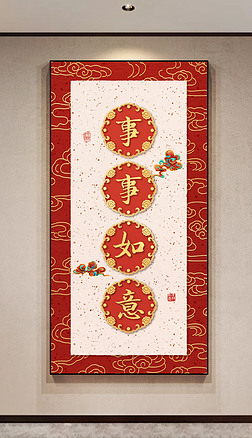 事
事
如
意